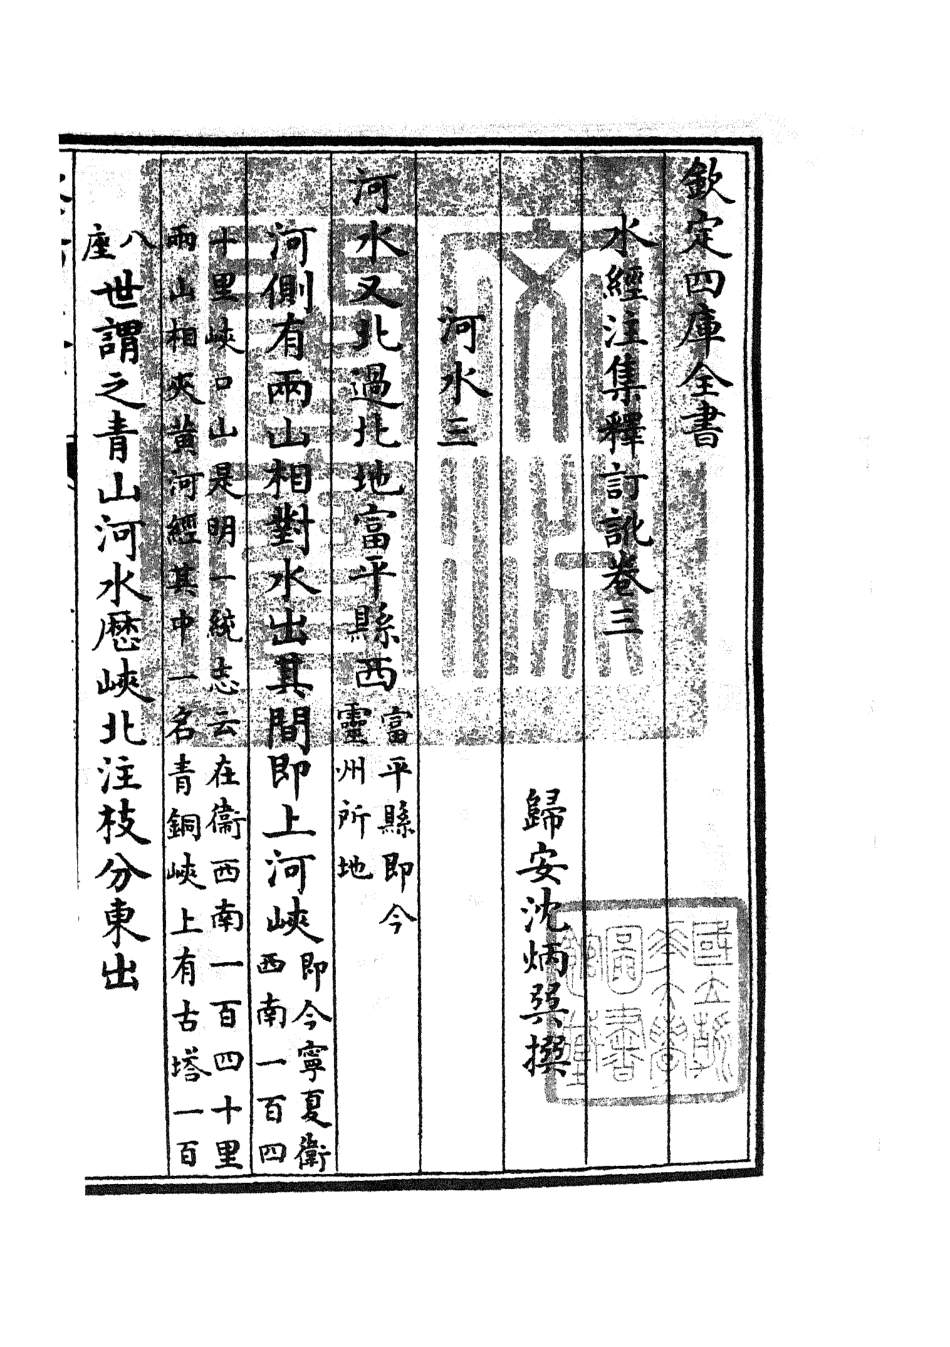 欽定四庫全書
水經注集釋訂訛卷三
歸安沈炳巽撰
河水三
河水又北過北地富平縣西富平縣即今
靈州所地
河側有兩山相對水出其間即上河峽即今寧夏衞
西南一百四
十里峽口山是明一統志云在衞西南一百四十里
兩山相夾黃河經其中一名青銅峽上有古塔一百
八
座世謂之青山河水歷峽北注枝分東出